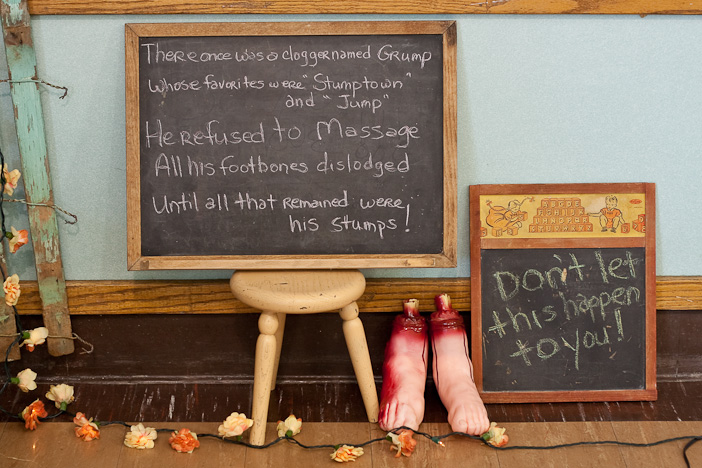 There once was a clogger named Grump
whose favorites were "Stumptown"
and "Jump"
He refused to Massage
All his footbones dislodged
Until all that remained were
his stumps!
Don't let
this happen
to you!